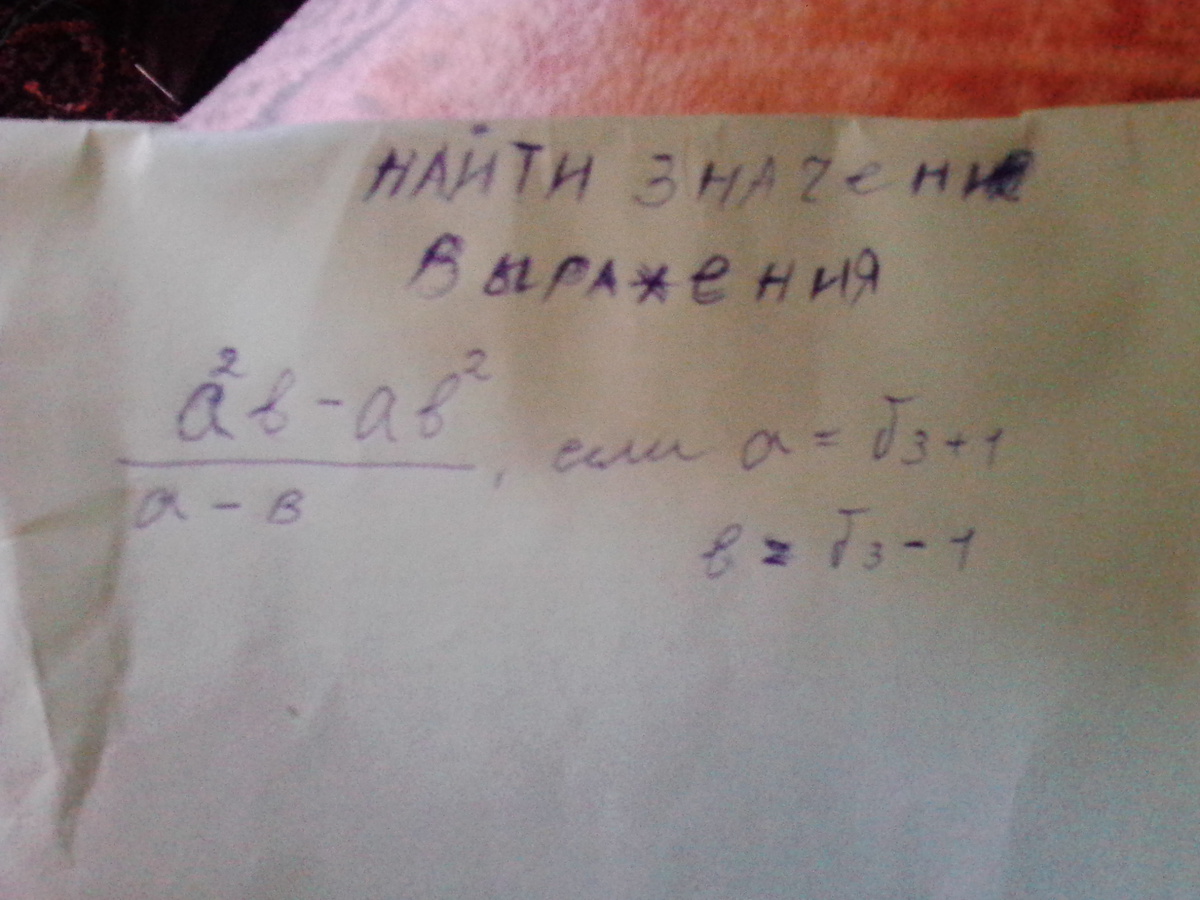 НАЙТИ ЗНАЧЕНИЕ
ВЫРАЖЕНИЯ
(a²b - ab²)/(a - b), если a = √3+1
b = √3 - 1